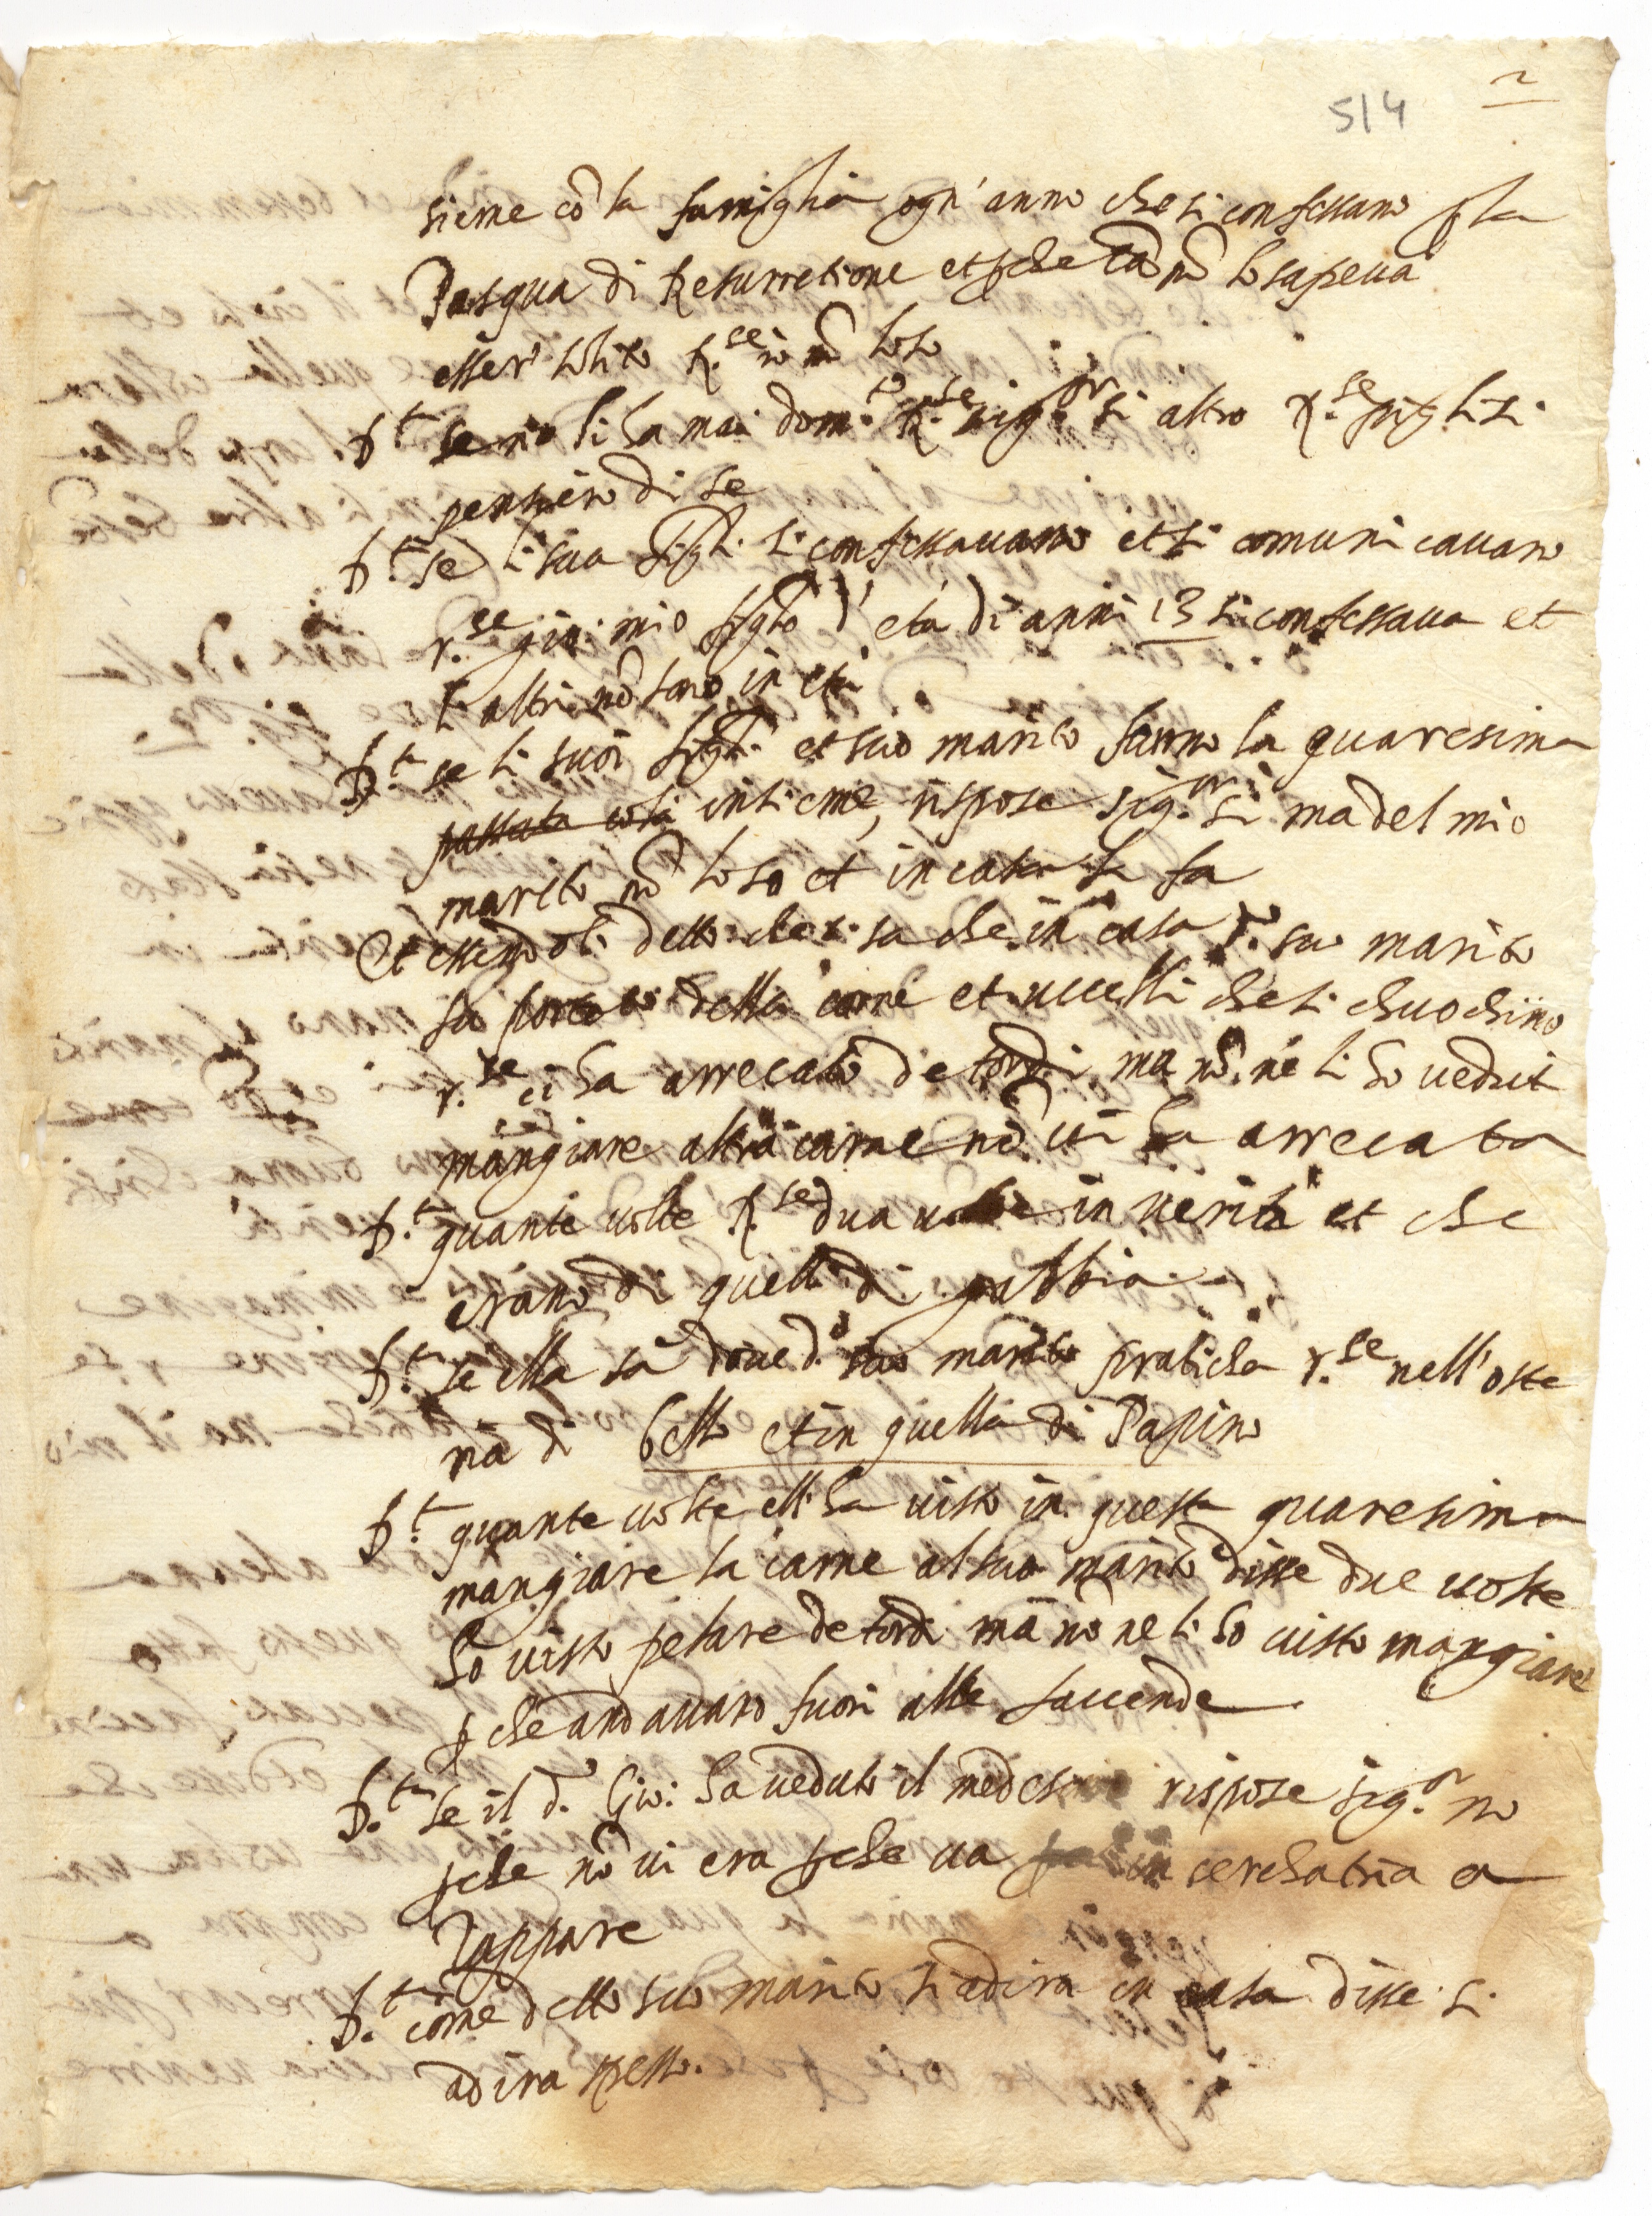 2
514
sieme cō la famiglia ogn' anno che si confessano p la
Pasqua di Resurretione et p che cā nō lo sapeua
esser' solito R.se io nō lo so
D.ta se nō li ha mai dom.to R.se sig.or si altro R.se pigli si
pensiero di se
D.ta se li sua figli si confessauano et si comunicauano
r.se gio: mio figlo d' età di anni 13 si confessaua et
l' altri nō sono in età
D.ta se li suoi figli et suo marito fanno la quaresima
passata così insieme, rispose sig.or si ma del mio
marito nō lo so et in casa la fa
Et essendoli detto che si sa che in casa d.o suo marito
fa portar della carne et uccelli che li chuochino
r.se ci ha arrecato de tordi ma nō ne li ho veduti
mangiare altra carne nō ui ha arrecata
D.ta quante uolte R.se dua uolte in uerità et che
erano di quelli di gabbia
D.ta se ella sà doue d.o suo marito praticha r.se nell' oste
ria di Betto et in quella di Papino
D.ta quante uolte ell' ha uisto in questa quaresima
mangiare la carne al suo marito disse due uolte
ho uisto pelare de tordi ma nō ne li ho uisto mangiare
p che andauano fuori alle faccende
D.ta se il d.o Gio: ha ueduto il medesimo rispose sig.or no
p che nō ui era p che ua in cerchatria a
Zappare
D.ta come detto suo marito si adira in casa disse si
adira spesso.